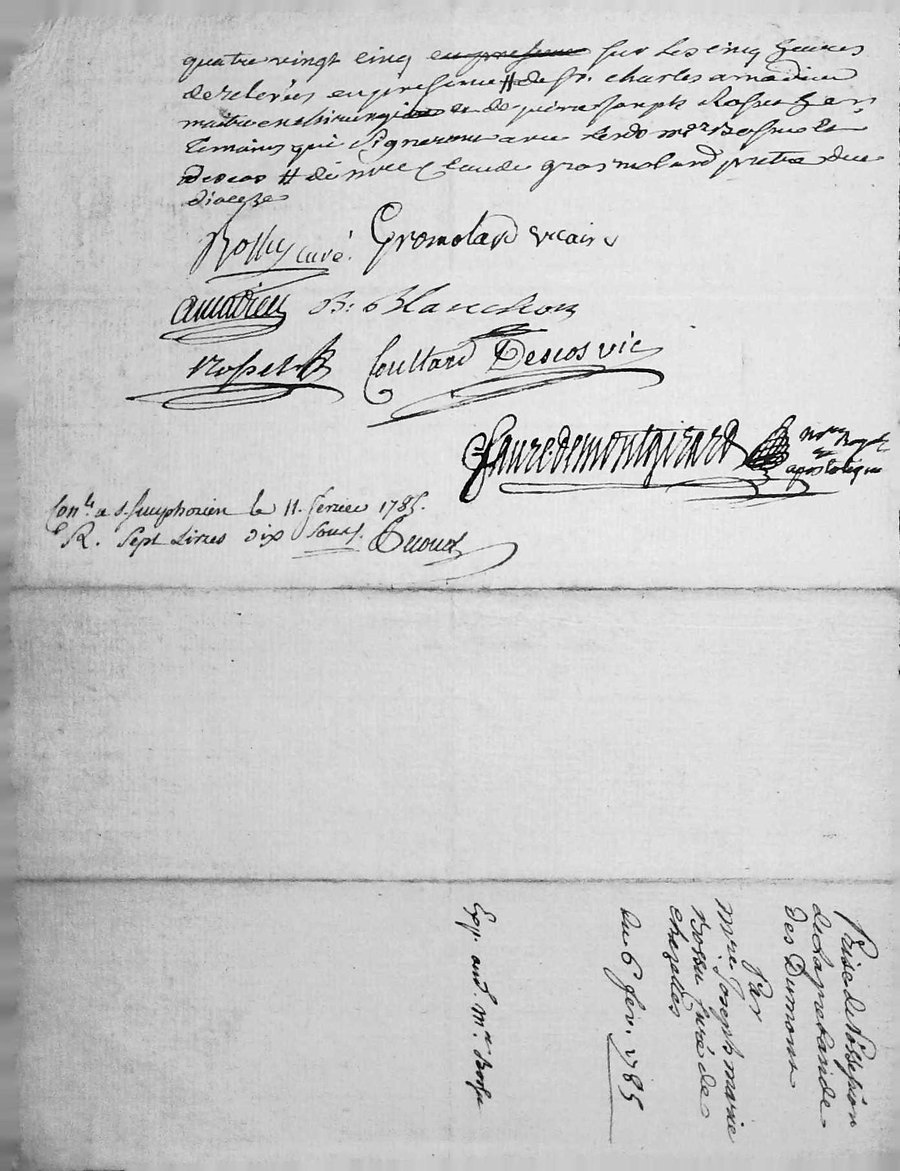 quatre vingt cinq en presence sur les cinq heures
de relevées en presence # de sr. charles amadieu
maitre en chirurgie et de pierre joseph Rosset
temoins qui signeront avec
# de mre Claude grosmolard pretre du
diocese
curé. Gromolard vicaire
amadieu B: Blanchon
Rosset Coultard Descos vic
faure de montgirard no.re Royal
et
apostolique
Con.lé a s. simphorien le 11. fevrier 1785.
R. sept Livres dix sous.
Prise de Possession
de la prebande
des Dumont
Par
Mre. Joseph marie
Bossu Curé de
chezelles
du 6 fev. 1785
Exp. aud. mre. Bossu